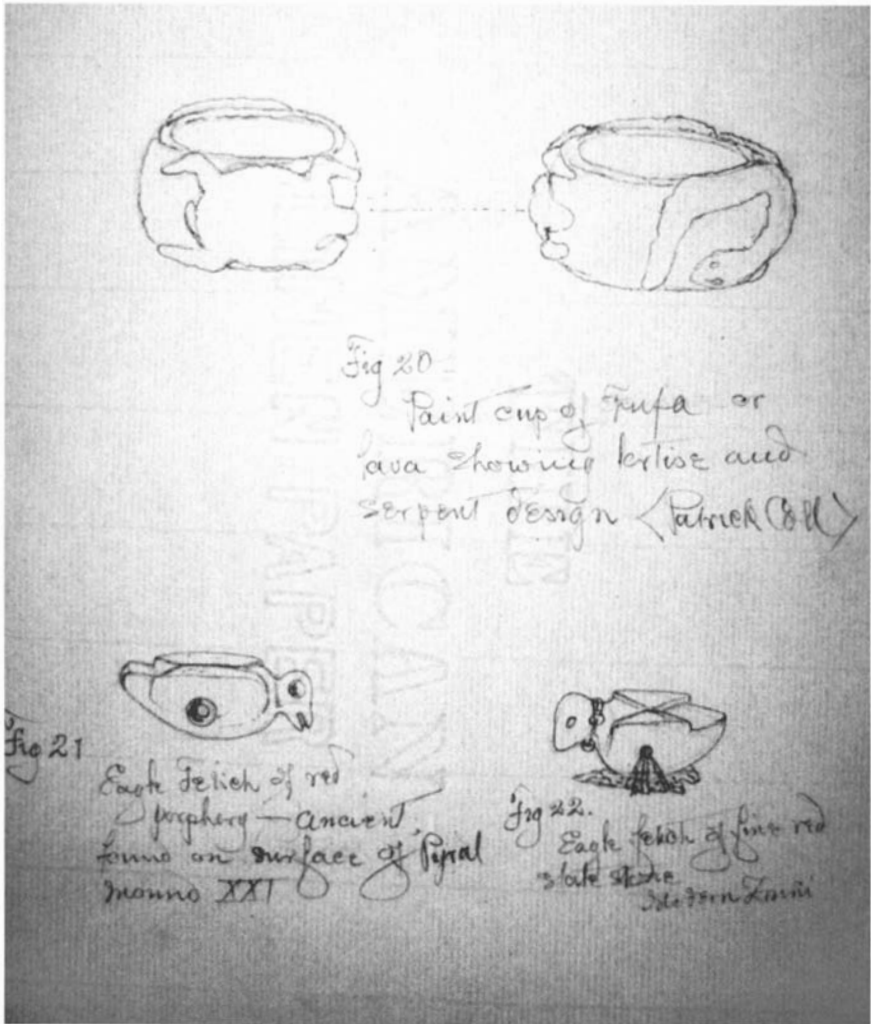 Fig 20
Paint cup of Tufa or
lava showing tortise and
serpent design <Patrick Coll>
Fig 21
Eagle fetich of red
porphery — ancient
found on surface of Pyral
mound XXI
Fig 22.
Eagle fetich of fine red
slate stone
Modern Zuñi
AMERICAN
PAPER